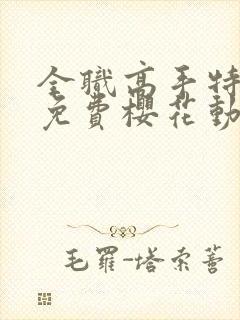 全職高手特
免費櫻花動
毛羅-塔索蒈